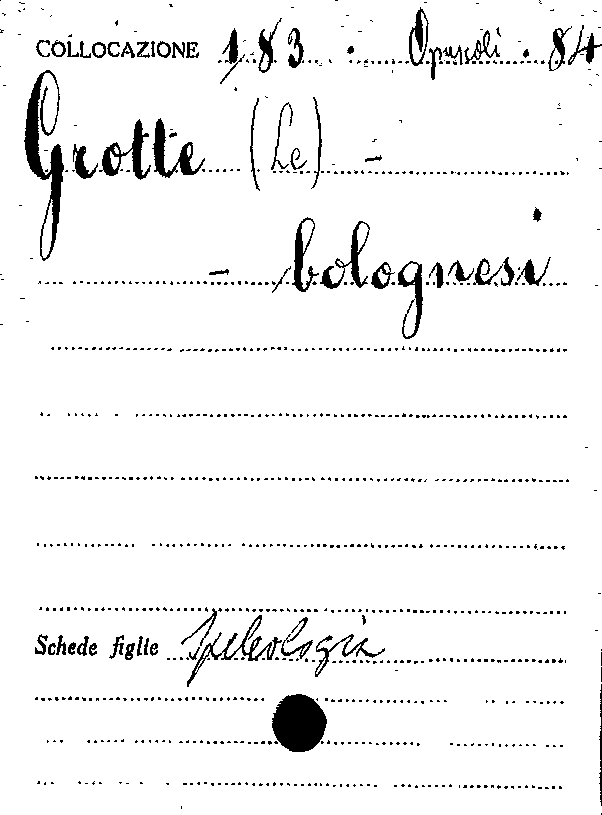 COLLOCAZIONE 183 . Opuscoli . 84
Grotte (Le) -
- bolognesi
Schede figlie Speleologia